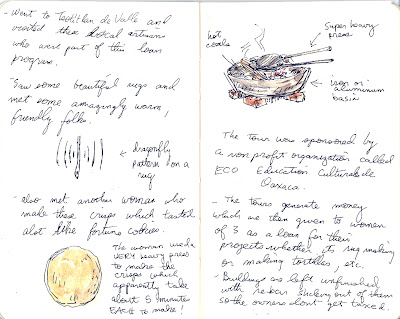 - Went to Teotitlan de Valle and
visited these local artisans
who were part of this loan
program.
- Saw some beautiful rugs and
met some amazingly warm,
friendly folks.
dragonfly
pattern on
a rug
- also met another woman who
make these crisps which tasted
alot like fortune cookies.
The woman used a
VERY heavy press
to make the
crisps which
apparently take
about 5 minutes
EACH to make!
hot
coals
super heavy
press
iron or
aluminum
basin
The tour was sponsored by
a non profit organization called
ECO Education Cultural de
Oaxaca.
- The tours generate money
which are then given to women
of 3 as a loan for their
projects whether its rug making
or making tortillas, etc.
- Buildings are left unfinished
with rebar sticking out of them
so the owners dont get taxed.